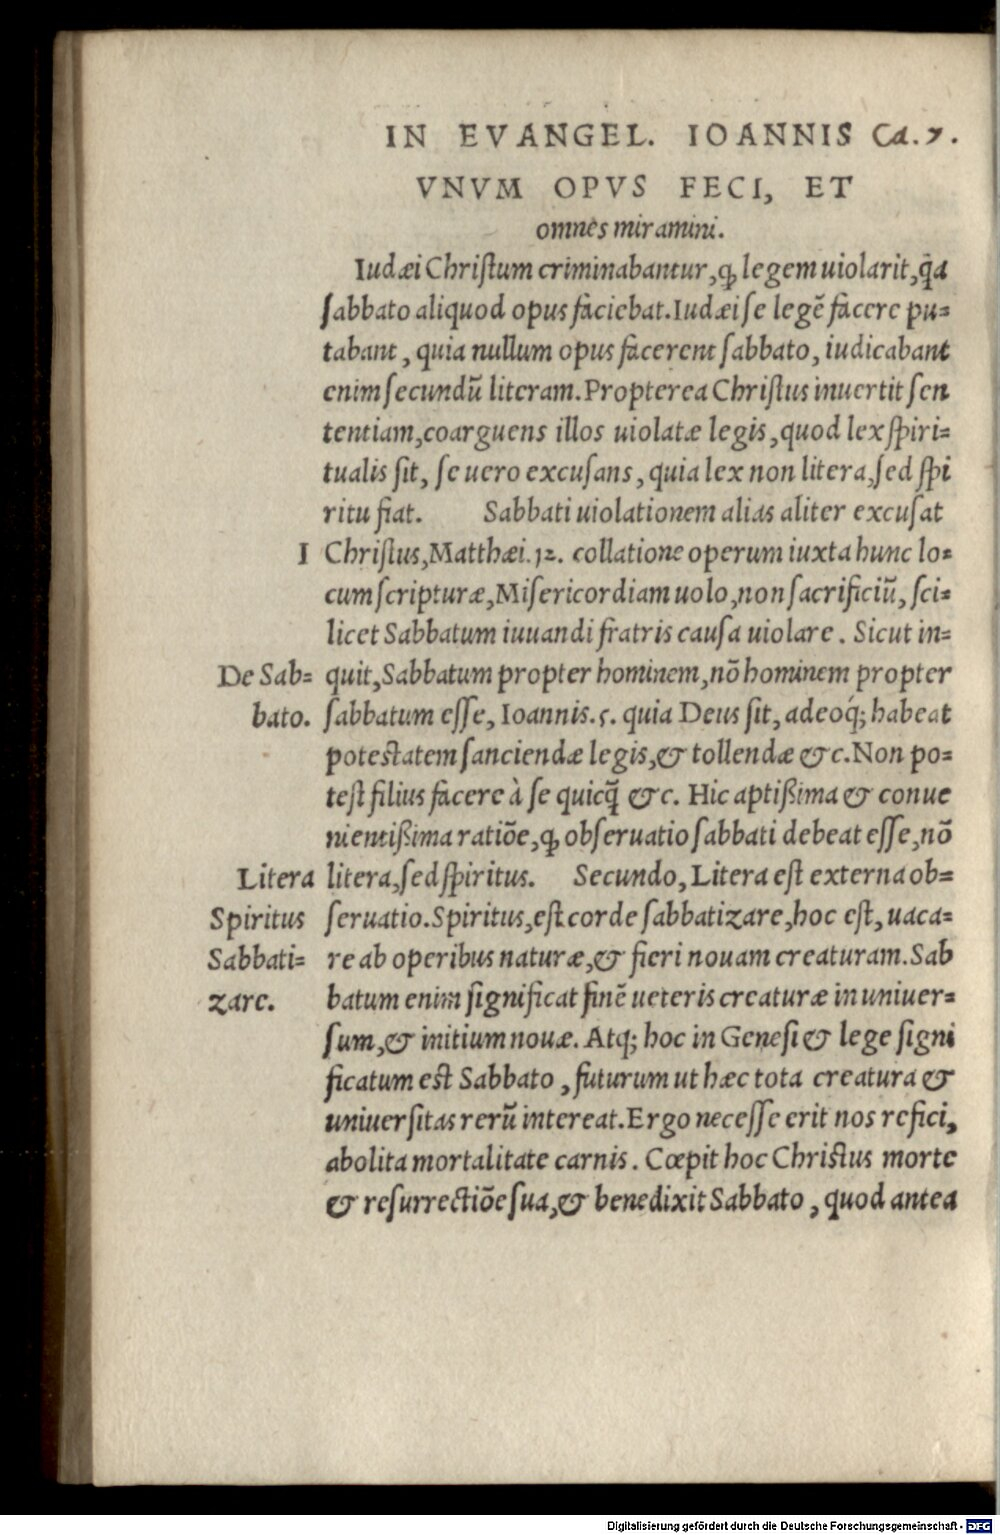 IN EVANGEL. IOANNIS Ca. 7.
VNVM OPVS FECI, ET
omnes miramini.
Iudæi Christum criminabantur, ꝙ legem uiolarit, q̃a
sabbato aliquod opus faciebat. Iudæi se legẽ facere pu=
tabant, quia nullum opus facerent sabbato, iudicabant
enim secundũ literam. Propterea Christus inuertit sen
tentiam, coarguens illos uiolatæ legis, quod lex spiri=
tualis sit, se uero excusans, quia lex non litera, sed spi
ritu fiat. Sabbati uiolationem alias aliter excusat
I Christus, Matthæi. 12. collatione operum iuxta hunc lo=
cum scripturæ, Misericordiam uolo, non sacrificiũ, sci=
licet Sabbatum iuuandi fratris causa uiolare. Sicut in=
De Sab= quit, Sabbatum propter hominem, nõ hominem propter
bato. sabbatum esse, Ioannis. 5. quia Deus sit, adeoq́; habeat
potestatem sanciendæ legis, & tollendæ &c. Non po=
test filius facere à se quicq̃ &c. Hic aptißima & conue
nientißima ratiõe, ꝙ obseruatio sabbati debeat esse, nõ
Litera litera, sed spiritus. Secundo, Litera est externa ob=
Spiritus seruatio. Spiritus, est corde sabbatizare, hoc est, uaca=
Sabbati= re ab operibus naturæ, & fieri nouam creaturam. Sab
zare. batum enim significat finẽ ueteris creaturæ in uniuer=
sum, & initium nouæ. Atq; hoc in Genesi & lege signi
ficatum est Sabbato, futurum ut hæc tota creatura &
uniuersitas rerũ intereat. Ergo necesse erit nos refici,
abolita mortalitate carnis. Cœpit hoc Christus morte
& resurrectiõe sua, & benedixit Sabbato, quod antea
Digitalisierung gefördert durch die Deutsche Forschungsgemeinschaft - DFG